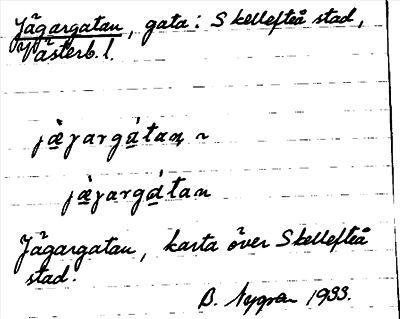 Jägargatan, gata: Skellefteå stad,
Västerb. l.
jæ̀γargátan, ~
jæ̀γargátan
Jägargatan, karta över Skellefteå
stad.
B. Nygren 1933.